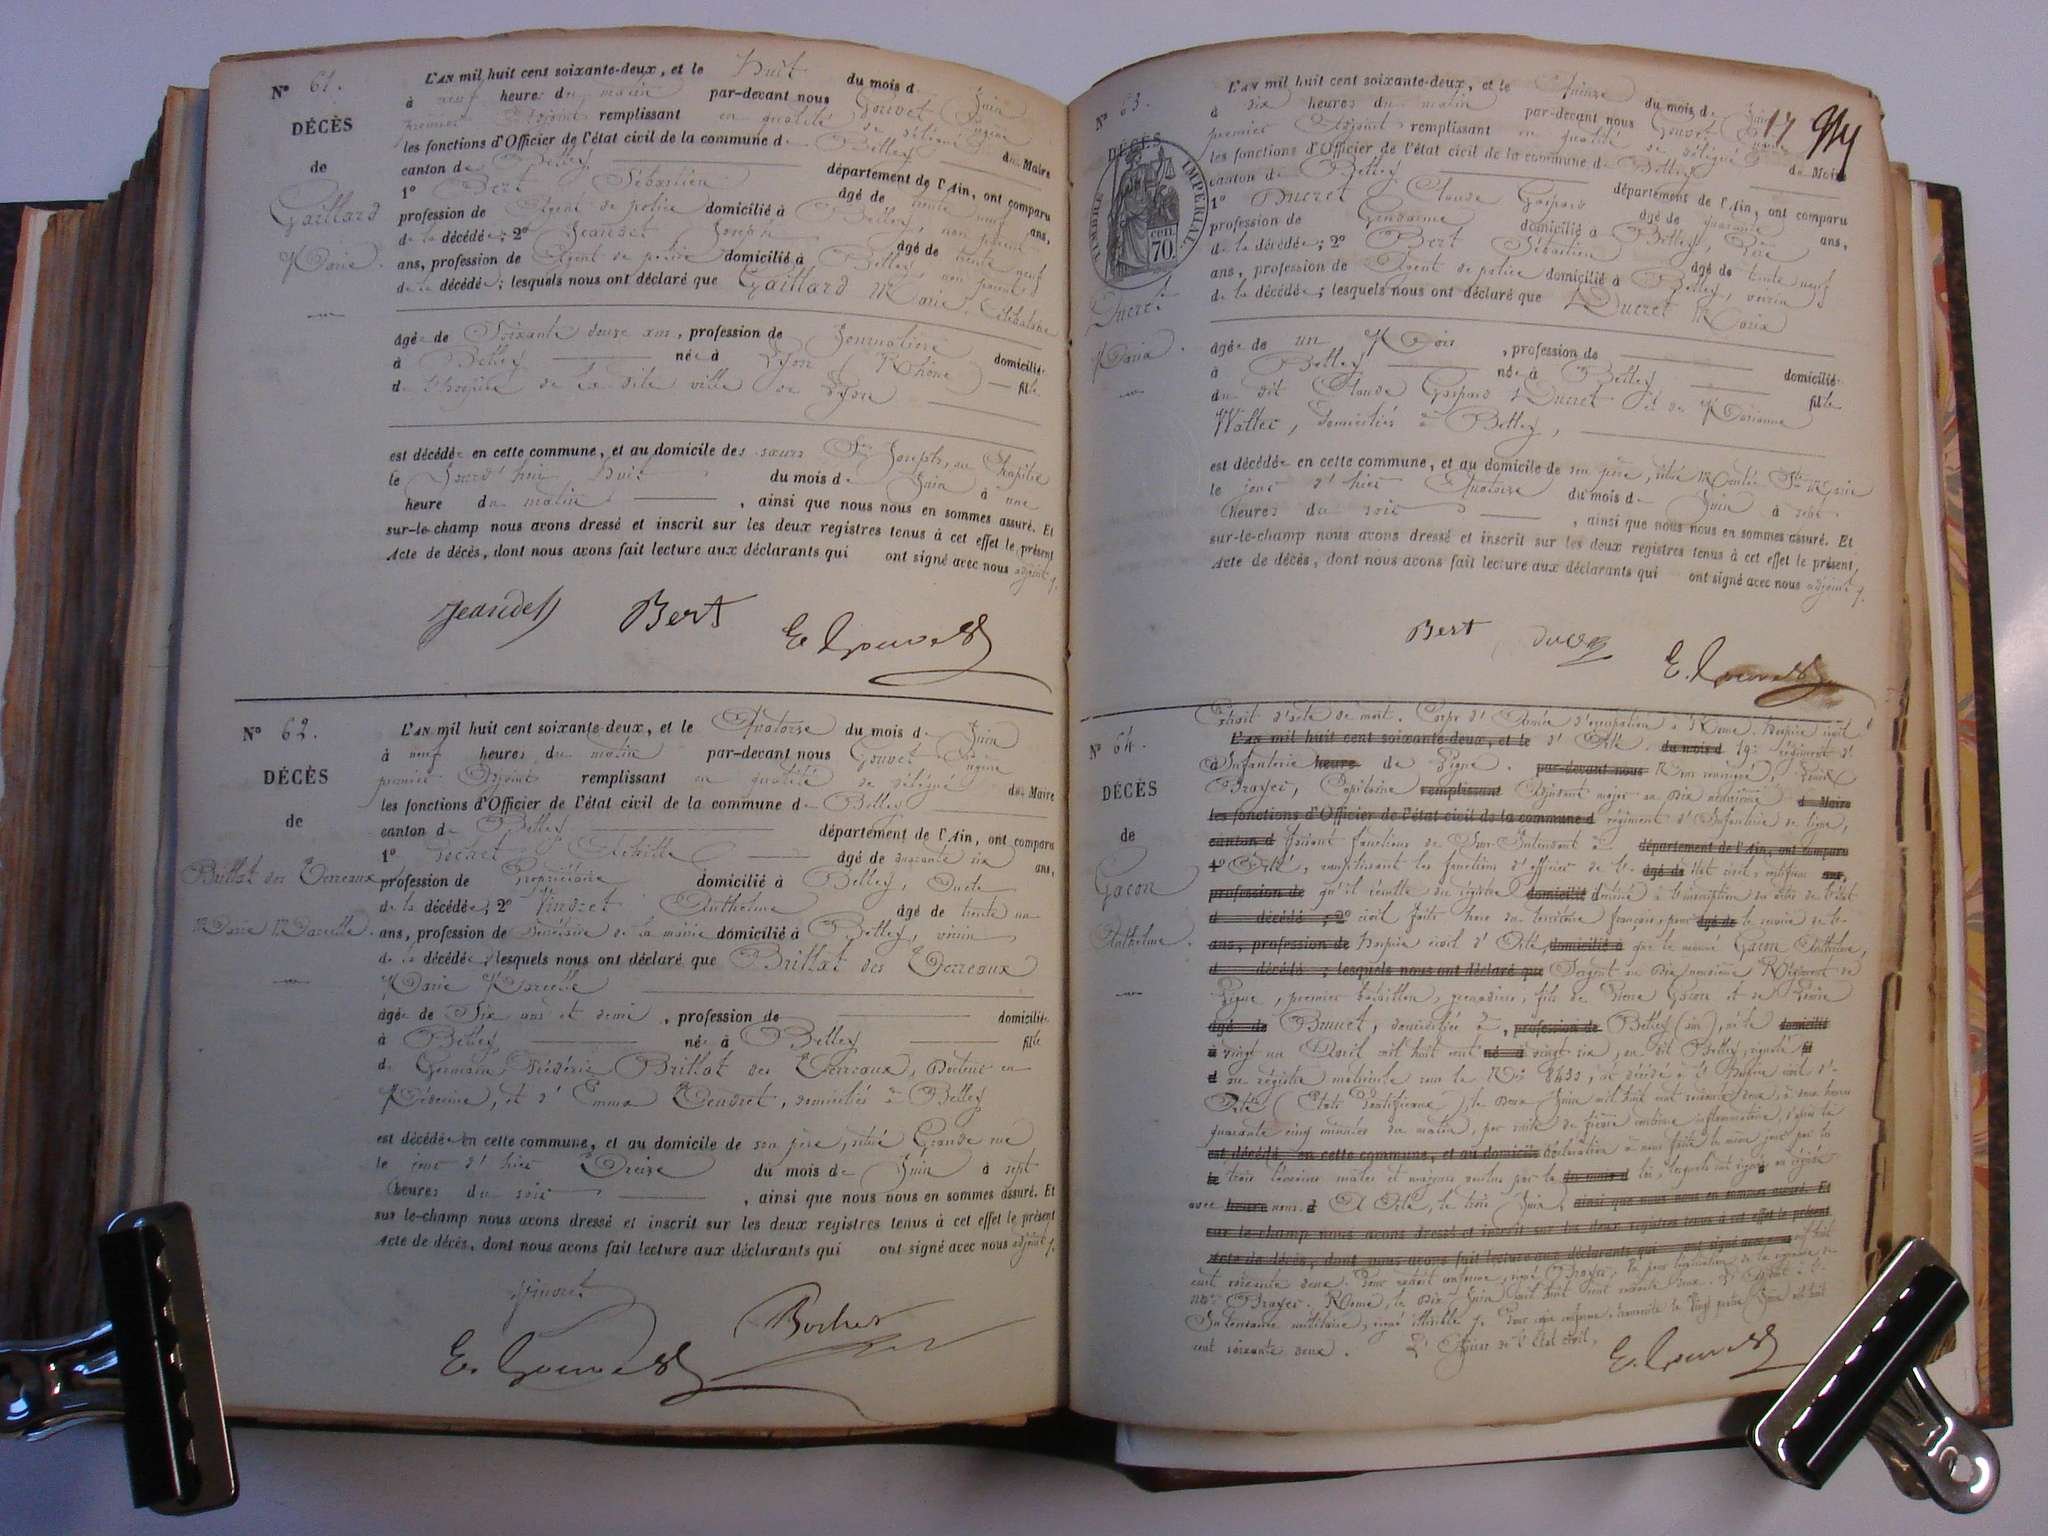 N° 61.
DÉCÈS
de
Gaillard
Marie.
L'AN mil huit cent soixante-deux, et le huit du mois de Juin
à neuf heures du matin par-devant nous Gouvet Eugène
premier Adjoint remplissant en qualité de délégué
les fonctions d'Officier de l'état civil de la commune de Belley du Maire
canton de Belley département de l'Ain, ont comparu
1° Bert Sébastien âgé de trente neuf ans,
profession de Agent de police domicilié à Belley, non parent
de la décédée; 2° Jeandet Joseph âgé de trente neuf
ans, profession de Agent de police domicilié à Belley, non parent
de la décédée; lesquels nous ont déclaré que Gaillard Marie, Célibataire
âgée de Soixante douze ans, profession de Journalière domiciliée
à Belley née à Lyon (Rhône) fille
de l'hospice de la dite ville de Lyon
est décédée en cette commune, et au domicile des sœurs St Joseph, au Chapitre
le jourd'hui huit du mois de Juin à une
heure du matin, ainsi que nous nous en sommes assuré. Et
sur-le-champ nous avons dressé et inscrit sur les deux registres tenus à cet effet le présent
Acte de décès, dont nous avons fait lecture aux déclarants qui ont signé avec nous adjoint
Jeandet Bert E. Gouvet
N° 62.
DÉCÈS
de
Brillat des Terreaux
Marie Marcelle.
L'AN mil huit cent soixante-deux, et le Quatorze du mois de Juin
à neuf heures du matin par-devant nous Gouvet Eugène
premier Adjoint remplissant en qualité de délégué du Maire
les fonctions d'Officier de l'état civil de la commune de Belley
canton de Belley département de l'Ain, ont comparu
1° Achille âgé de quarante six ans,
profession de Propriétaire domicilié à Belley,
de la décédée; 2° Vindret Anthelme âgé de trente un
ans, profession de Secrétaire de la mairie domicilié à Belley, voisin
de la décédée; lesquels nous ont déclaré que Brillat des Terreaux
Marie Marcelle
âgée de Six ans et demi, profession de domiciliée
à Belley née à Belley fille
de Germain Frédéric Brillat des Terreaux, Docteur en
Médecine, et d'Emma Tendret, domiciliés à Belley
est décédée en cette commune, et au domicile de son père, situé Grande rue
le jour d'hier Treize du mois de Juin à sept
heures du soir, ainsi que nous nous en sommes assuré. Et
sur-le-champ nous avons dressé et inscrit sur les deux registres tenus à cet effet le présent
Acte de décès, dont nous avons fait lecture aux déclarants qui ont signé avec nous adjoint
E. Gouvet
N° 63.
DÉCÈS
TIMBRE IMPÉRIAL
CENT.
70.
Ducret
Maria.
17
L'AN mil huit cent soixante-deux, et le Quinze du mois de Juin
à six heures du matin par-devant nous Gouvet
premier Adjoint remplissant en qualité de délégué
les fonctions d'Officier de l'état civil de la commune de Belley du Maire
canton de Belley département de l'Ain, ont comparu
1° Ducret Claude Gaspard âgé de quarante ans,
profession de Gendarme domicilié à Belley, Père
de la décédée; 2° Bert Sébastien âgé de trente neuf
ans, profession de Agent de police domicilié à Belley, voisin
de la décédée; lesquels nous ont déclaré que Ducret Maria
âgée de un Mois, profession de domiciliée
à Belley née à Belley fille
du dit Claude Gaspard Ducret et de Marianne
Walter, domiciliés à Belley,
est décédée en cette commune, et au domicile de son père, situé Montée
le jour d'hier Quatorze du mois de Juin à sept
heures du soir, ainsi que nous nous en sommes assuré. Et
sur-le-champ nous avons dressé et inscrit sur les deux registres tenus à cet effet le présent
Acte de décès, dont nous avons fait lecture aux déclarants qui ont signé avec nous adjoint
Bert E. Gouvet
N° 64.
DÉCÈS
de
Gacon
Anthelme.
Extrait d'acte de mort. Corps d'Armée d'occupation à Rome. Hospice civil
L'AN mil huit cent soixante-deux, et le du mois d 19e régiment d'
à Infanterie heure de Ligne. par-devant nous Nous soussigné, Louis
Brayer, Capitaine remplissant Adjudant major au dix neuvième d Maire
les fonctions d'Officier de l'état civil de la commune d régiment d'Infanterie de ligne,
canton d faisant fonctions de Sous-Intendant à département de l'Ain, ont comparu
1° remplissant les fonctions d'officier de l' âgé de état civil, certifions ans,
profession de qu'il résulte du registre domicilié destiné à l'inscription des actes de l'état
d décédé; 2° civil faits hors du territoire français, pour âgé de
ans, profession de hospice civil d' domicilié à que le nommé Gacon Anthelme,
d décédé; lesquels nous ont déclaré que Sergent au dix neuvième Régiment de
Ligne, premier bataillon, grenadiers, fils de Pierre Gacon et de Louise
âgé de Brunet, domiciliés à, profession de Belley (Ain), né le domicilié
à vingt un Avril mil huit cent né à vingt six, au dit Belley, signalé fil
d au registre matricule sous le N° 8433, est décédé à l'hospice civil d'
(Etats Pontificaux), le deux Juin mil huit cent soixante deux, à deux heures
quarante cinq minutes du matin, par suite de fièvre
est décédé en cette commune, et au domicile déclaration à nous faite le même jour par les
le trois témoins mâles et majeurs voulus par la du mois d loi, lesquels ont signé au registre
avec heure nous. d le trois Juin, ainsi que nous nous en sommes assuré. Et
sur-le-champ nous avons dressé et inscrit sur les deux registres tenus à cet effet le présent
Acte de décès, dont nous avons fait lecture aux déclarants qui ont signé avec mil huit
cent soixante deux. Pour extrait conforme, signé Brayer, Vu pour légalisation de la signature de
Mr Brayer. Rome, le dix Juin mil huit cent soixante deux.
Intendance militaire, signé illisible. Pour copie conforme, transcrite le vingt Juin mil huit
cent soixante deux. L'Officier de l'Etat civil,
E. Gouvet